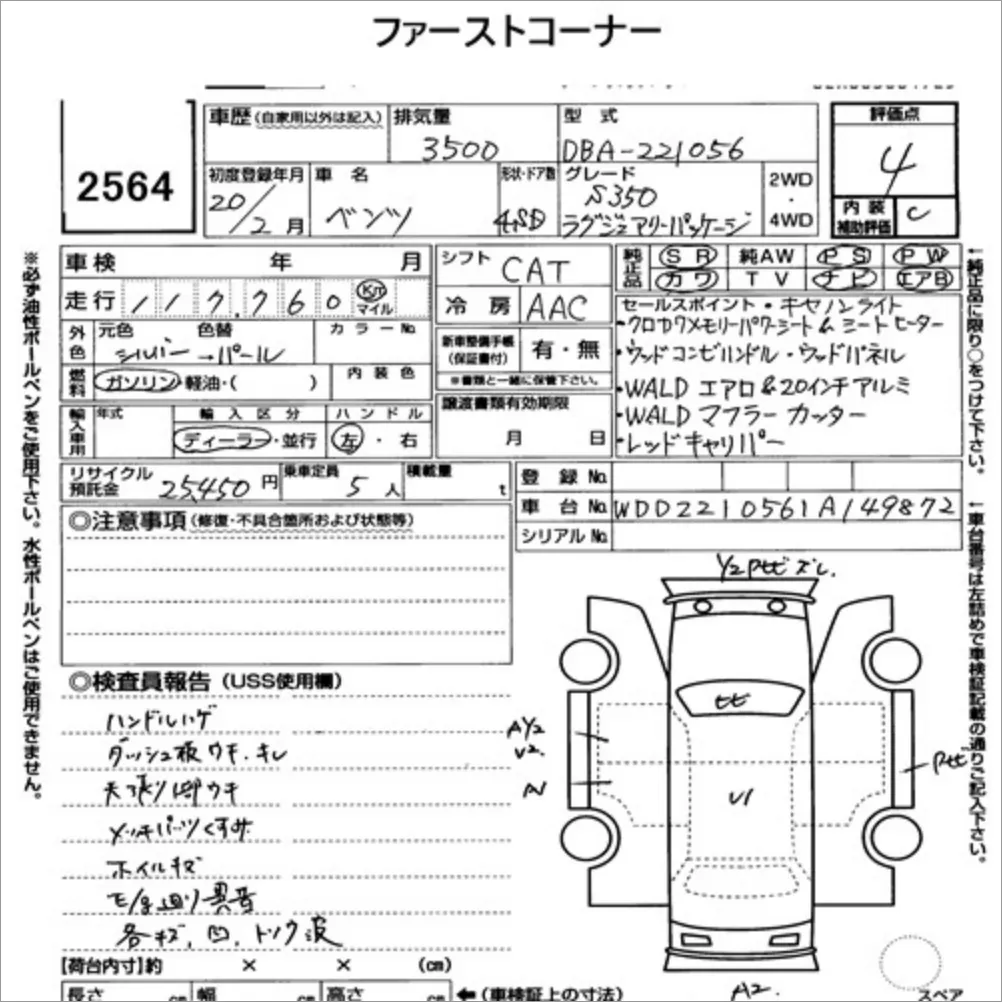 ファーストコーナー
2564
車歴(自家用以外は記入)
排気量
3500
型式
DBA-221056
評価点
4
内装
補助評価
C
初度登録年月
20/2月
車名
ベンツ
形状・ドア数
4SD
グレード
S350
ラグジュアリーパッケージ
2WD
・
4WD
車検 年 月
走行 117,760 Km マイル
シフト
CAT
冷房
AAC
純正品
SR 純AW PS PW
カワ TV ナビ エアB
外色
元色 色替
シルバー→パール
カラーNo.
燃料
ガソリン・軽油・( )
内装色
新車整備手帳
(保証書付)
有・無
※書類と一緒に保管下さい。
セールスポイント・キセノンライト
・クロカワメモリーパワーシート&シートヒーター
・ウッドコンビハンドル・ウッドパネル
・WALD エアロ&20インチアルミ
・WALD マフラーカッター
・レッドキャリパー
輸入車用
年式
輸入区分
ディーラー・並行
ハンドル
左・右
譲渡書類有効期限
月 日
リサイクル
預託金
25,450円
乗車定員
5人
積載量
t
登録No.
車台No. WDD2210561A149872
シリアルNo.
◎注意事項(修復・不具合箇所および状態等)
◎検査員報告(USS使用欄)
ハンドルハゲ
ダッシュ板ウキ・キレ
天張り内ウキ
メッキパーツくすみ
ホイルキズ
各キズ、凹、トソウ波
A Y2
V2.
U1
A2.
【荷台内寸】約 × × (cm)
長さ cm 幅 cm 高さ cm
←(車検証上の寸法)
スペア
※必ず油性ボールペンをご使用下さい。水性ボールペンはご使用できません。
←純正品に限り○をつけて下さい。
←車台番号は左詰めで車検証記載の通りご記入下さい。